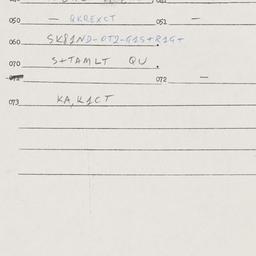 050 — QKREXCT 051 —
060 SK81ND-OT2-G1S+R1G+
070 S+TAMLT QU.
072 —
073 KA,K1CT